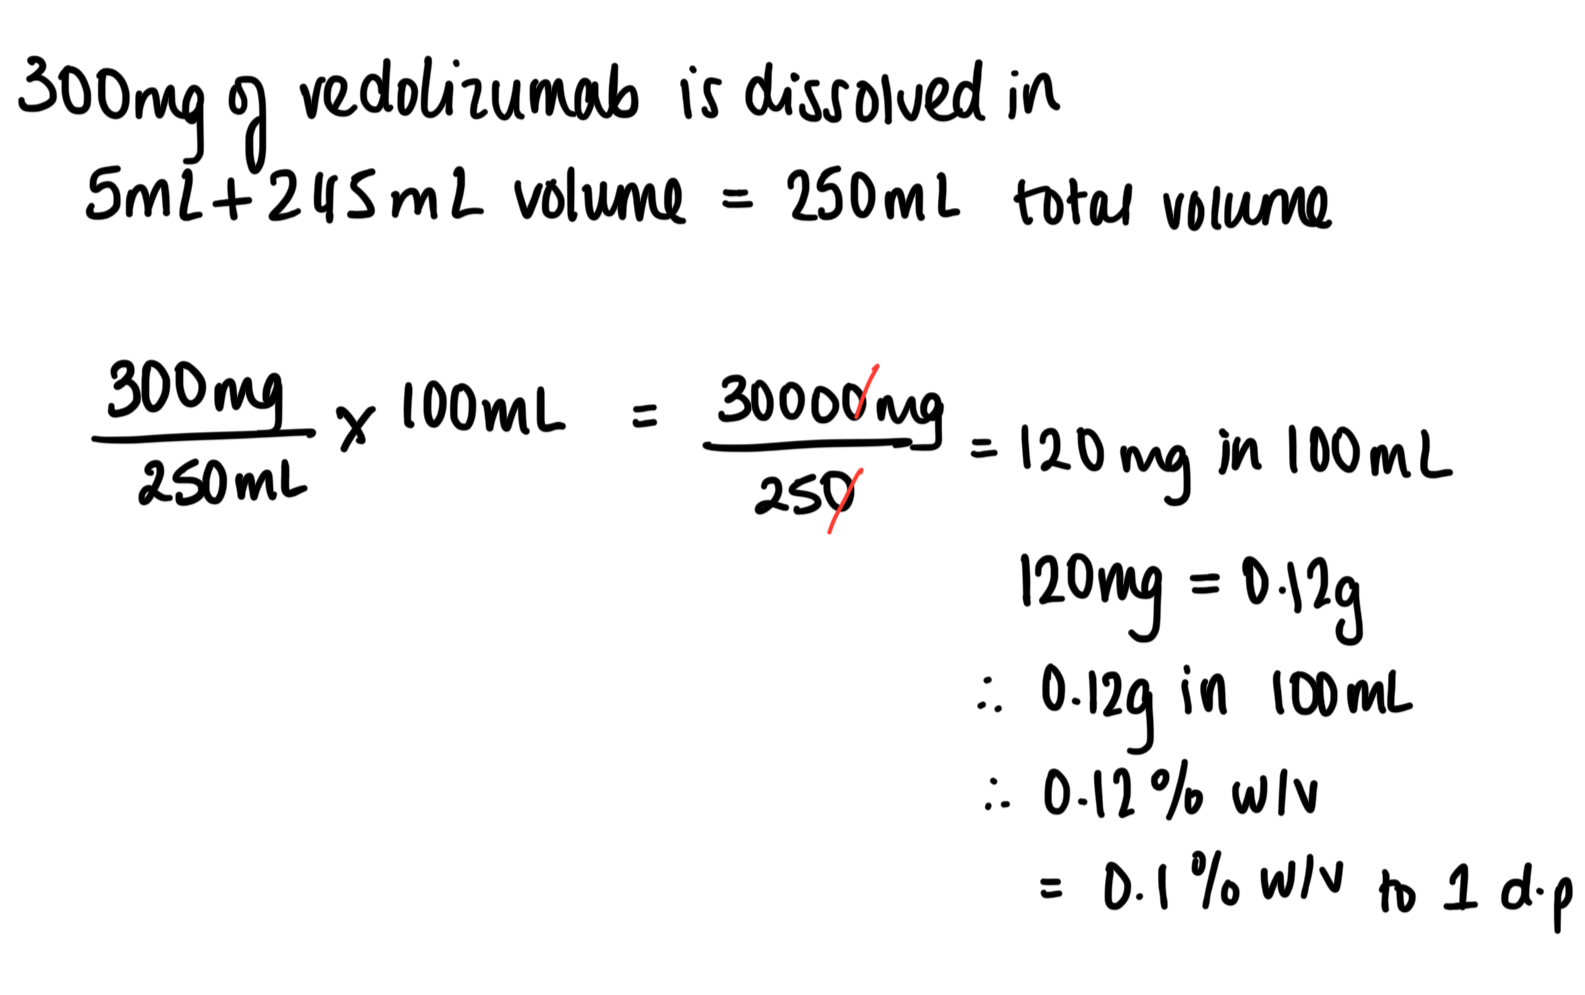 300mg of vedolizumab is dissolved in
5mL+245mL volume = 250mL total volume
300mg/250mL x 100mL = 30000mg/250 = 120mg in 100mL
120mg = 0.12g
∴ 0.12g in 100mL
∴ 0.12% w/v
= 0.1% w/v to 1 d.p